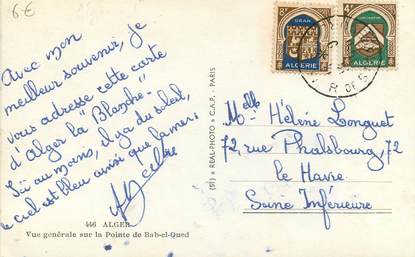 6 €
Avec mon
meilleur souvenir, je
vous adresse cette carte
d'Alger la "Blanche".
Ici au moins, il y a du soleil,
le ciel est bleu ainsi que la mer.
446 ALGER
Vue générale sur la Pointe de Bab-el-Oued
(SI) * REAL-PHOTO * C.A.P. - PARIS
ORAN
ALGERIE
ALGERIE
R. DE S
Melle Hélène Longuet
72, rue Phalsbourg, 72
le Havre
Seine Inférieure